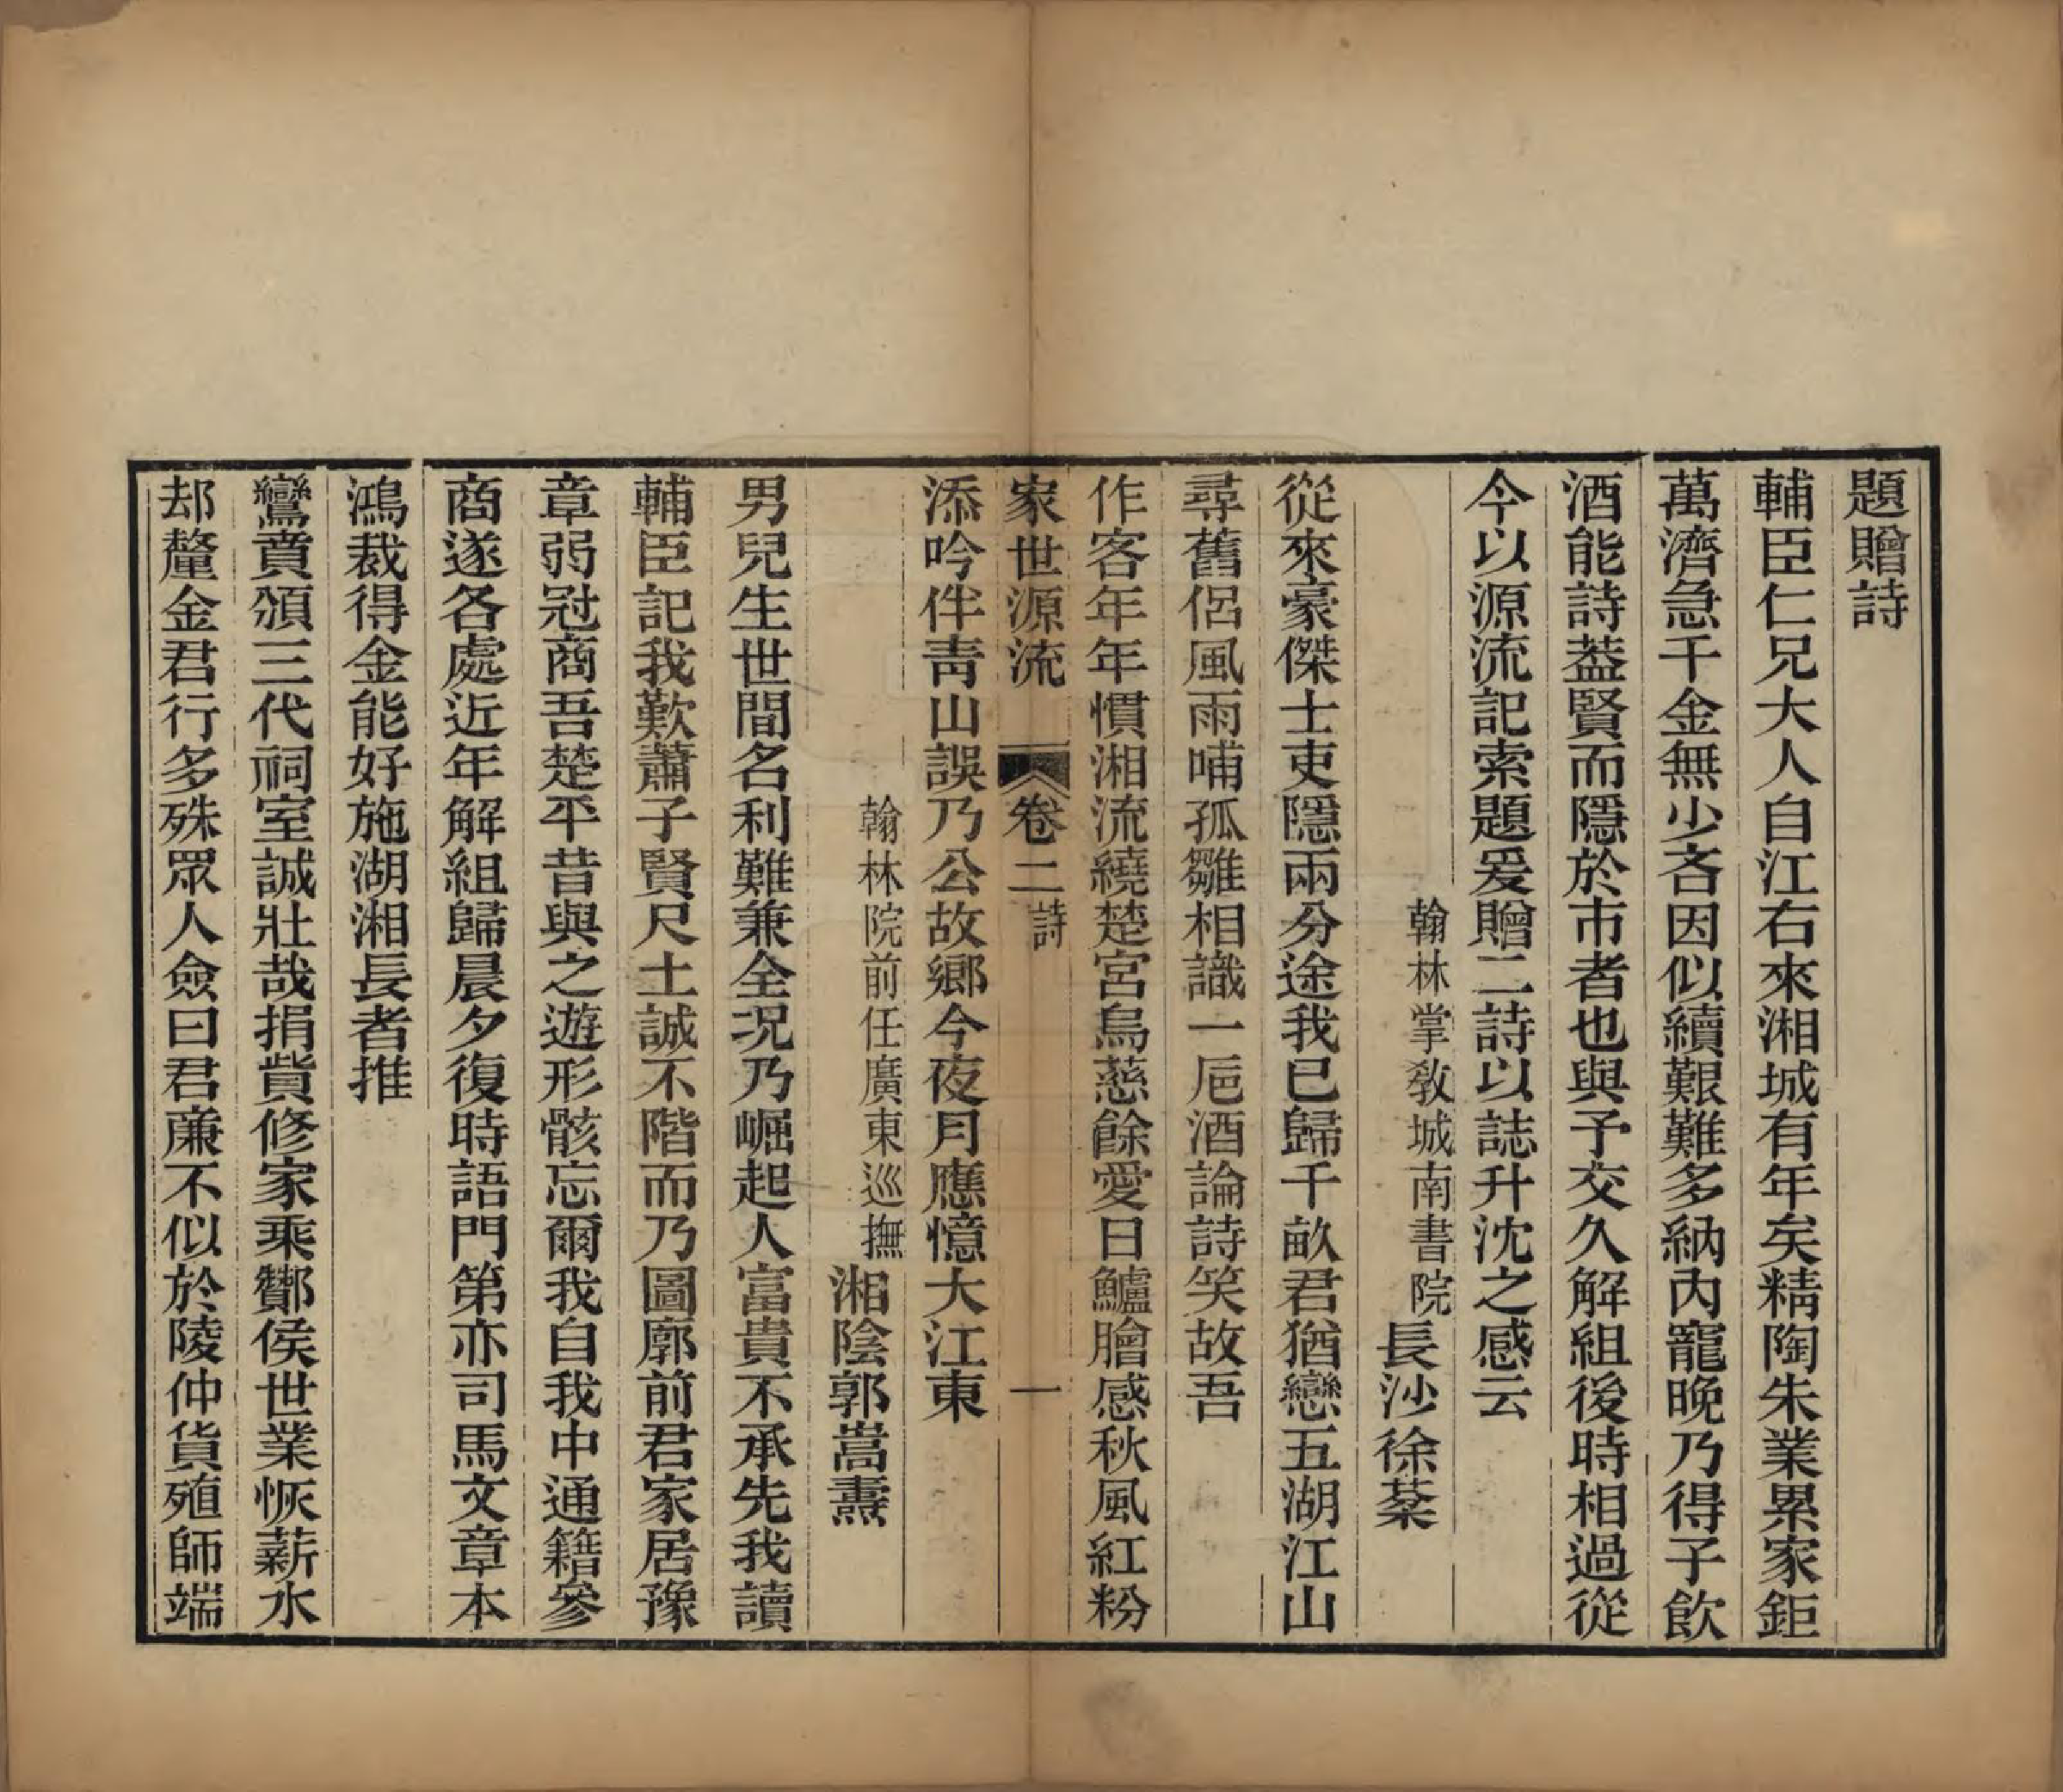 題贈詩
輔臣仁兄大人自江右來湘城有年矣精陶朱業累家鉅
萬濟急千金無少吝因似續艱難多納內寵晚乃得子飲
酒能詩葢賢而隱於市者也與予交久解組後時相過從
今以源流記索題爰贈二詩以誌升沈之感云
翰林掌教城南書院長沙徐棻
從來豪傑士吏隱兩分途我已歸千畝君猶戀五湖江山
尋舊侶風雨哺孤雛相識一巵酒論詩笑故吾
作客年年慣湘流繞楚宮烏慈餘愛日鱸膾感秋風紅粉
家世源流 卷二 詩 一
添吟伴靑山誤乃公故鄉今夜月應憶大江東
翰林院前任廣東巡撫湘陰郭嵩燾
男兒生世間名利難兼全况乃崛起人富貴不承先我讀
輔臣記我歎蕭子賢尺土誠不階而乃圖廓前君家居豫
章弱冠商吾楚平昔與之遊形骸忘爾我自我中通籍參
商遂各處近年解組歸晨夕復時語門第亦司馬文章本
鴻裁得金能好施湖湘長者推
鸞賁頒三代祠室誠壯哉捐貲修家乘酇侯世業恢薪水
却釐金君行多殊眾人僉曰君廉不似於陵仲貨殖師端